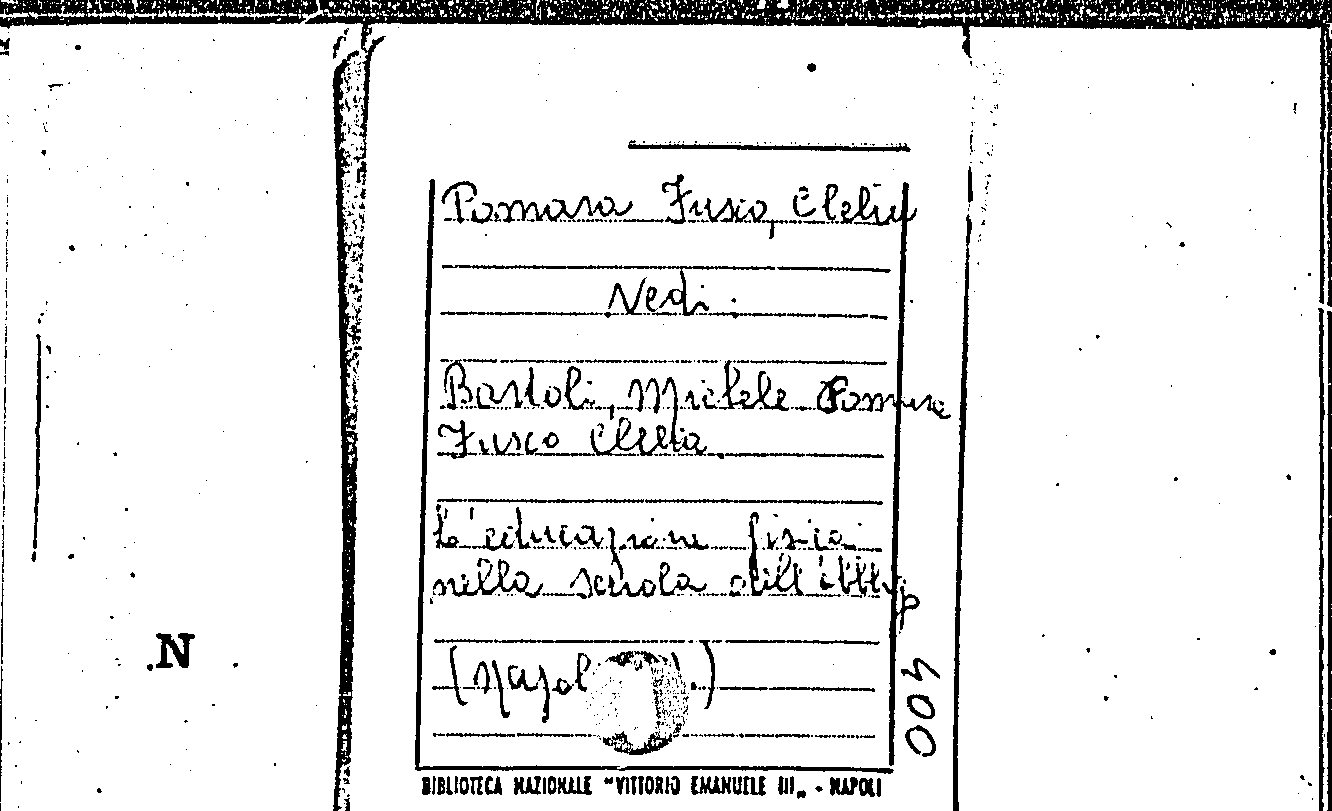 Pomara Fusco, Clelia
Vedi:
Bartoli, Michele Pomara
Fusco Clelia.
L'educazione fisica
nella scuola dell'
(Napol .)
400
N
BIBLIOTECA NAZIONALE "VITTORIO EMANUELE III„ - NAPOLI